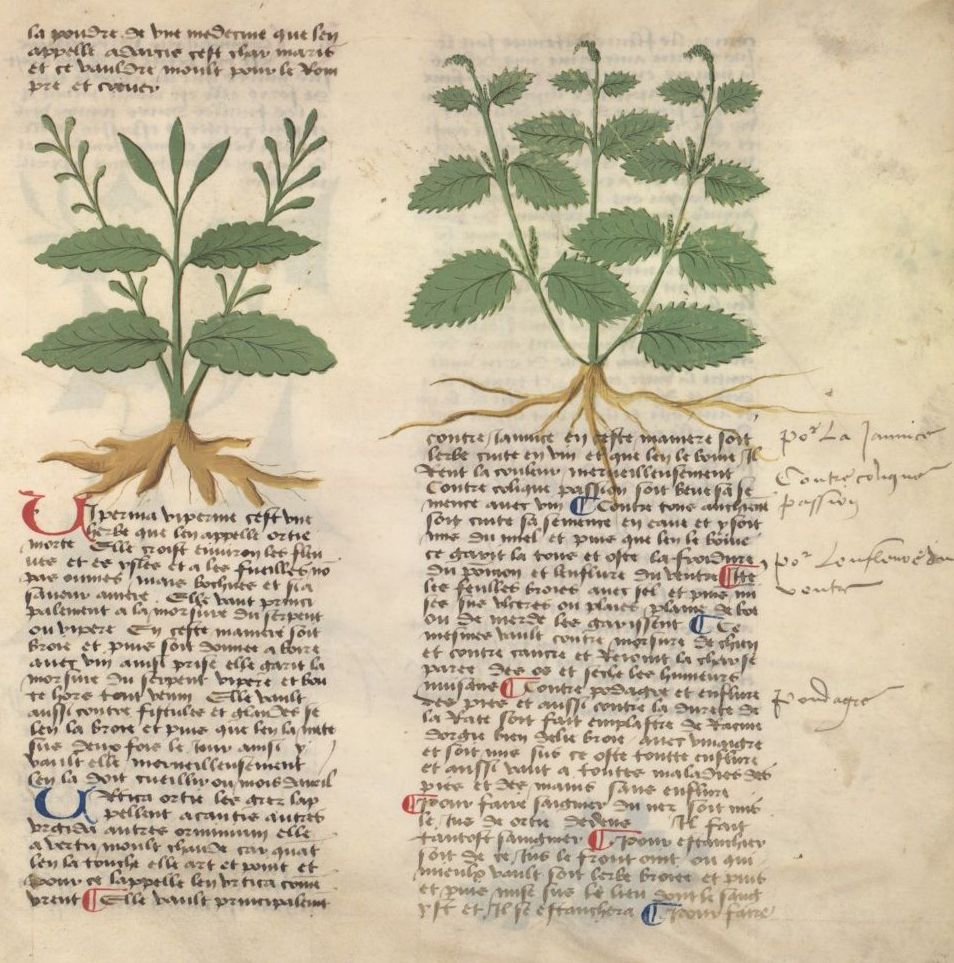 la poudre de vne medecine que len
appelle adarcis cest char marit
et ce vauldre moult pour le rom
pre et crever
Viperina viperine cest vne
herbe que len appelle ortie
morte Elle croist environ les fleu
ues et es ysles et a les fueilles no
pas onnies mais bochues et si a
saveur amere Elle vaut princi
palement a la morsure du serpent
ou vipere En ceste maniere soit
broie et puis soit donnee a boire
avec vin ainsi prise elle garit la
morsure du serpent vipere et bou
te hors tout venin Elle vault
aussi contre fistules et glandes se
len la broie et puis que len la mete
sus deux fois le iour ainsi y
vault elle merveilleusement
len la doit cueillir ou mois davril
Vrtica ortie les grez lap
pellent acantis autres
elle
a vertu moult chaude car quat
len la touche elle art et point et
pour ce lappelle len vrtica come
vrent Elle vault principalment
contre iaunice en ceste maniere soit
lerbe cuite en vin et que len le boive Il
rent la couleur merveilleusement
Contre colique passion soit beue sa se
mence avec vin Contre tous anchiene
soit cuite sa semence en eaue et y soit
mis du miel et puis que len le boive
ce garit la tous et oste la froidure
du poumon et lenflure du ventre Ite
les feulles broies avec sel et puis mi
ses sus vlceres ou plaies plaines de boe
ou de merde les garissent Ce
mesmes vault contre morsure de chien
et contre cancre et reioint la char se
paree des os et seche les humeurs
musans Contre podagre et enflure
des pies et aussi contre la durete de
la rate soit fait emplastre de racine
dorgie bien delie broie avec vinaigre
et soit mis sus ce oste toute enflure
et aussi vaut a toutes maladies des
pies et des mains sans enflure
Pour faire saignier du nez soit mis
le ius de ortie dedens Il fait
tantost saignier Pour estanchier
soit de ce ius le front oint ou qui
mieulx vault soit lerbe broiee et puis
et puis mise sus le lieu dont le sang
yst et il se estanchera Pour faire
por La Jaunice
Contre colique
passion
por Lenfleure du
ventre
Poudagre